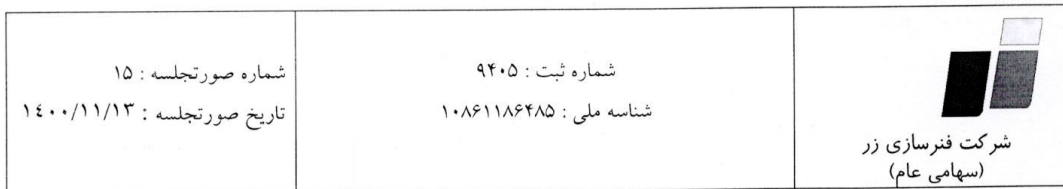 شرکت فنرسازی زر
(سهامی عام)
شماره ثبت : ۹۴۰۵
شناسه ملی : ۱۰۸۶۱۱۸۶۴۸۵
شماره صورتجلسه : ۱۵
تاریخ صورتجلسه : ۱۴۰۰/۱۱/۱۳